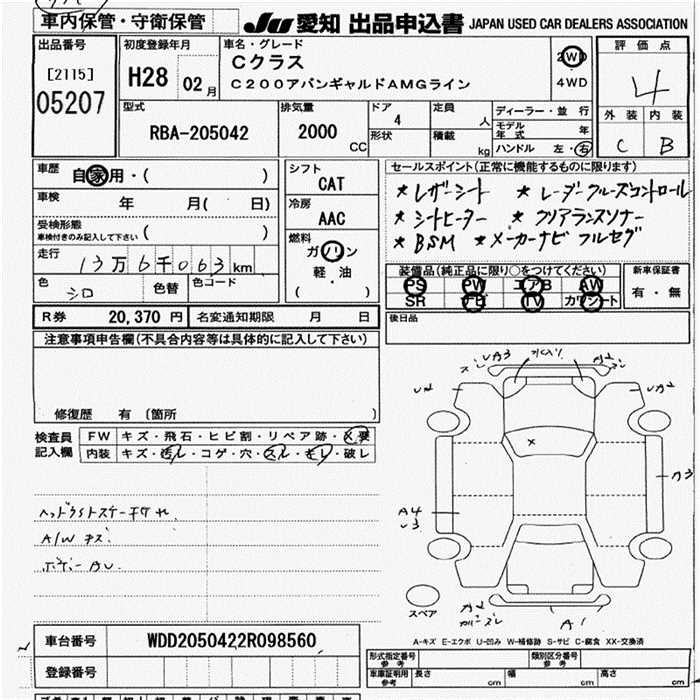 車内保管・守衛保管
JU 愛知 出品申込書 JAPAN USED CAR DEALERS ASSOCIATION
出品番号
[2115]
05207
初度登録年月
H28 02 月
車名・グレード
Cクラス
C200アバンギャルドAMGライン
2WD
4WD
評価点
4
外装 内装
C B
型式
RBA-205042
排気量
2000
CC
ドア
4
形状
定員
人
積載
kg
ディーラー・並行
モデル年式 年
ハンドル 左・右
車歴
自家用・( )
車検
年 月( 日)
受検形態
車検付きのみ記入して下さい ( )
走行
13万6千063 km
色
シロ
色替
色コード
シフト
CAT
冷房
AAC
燃料
ガソリン
軽・油
( )
セールスポイント(正常に機能するものに限ります)
★レザーシート ★レーダークルーズコントロール
★シートヒーター ★クリアランスソナー
★BSM ★メーカーナビ フルセグ
装備品(純正品に限り○をつけてください)
PS PW エアB AW
SR ナビ TV カワシート
新車保証書
有・無
後日品
R券 20,370 円
名変通知期限 月 日
注意事項申告欄(不具合内容等は具体的に記入して下さい)
修復歴 有 〔箇所 〕
検査員
記入欄
FW キズ・飛石・ヒビ割・リペア跡・X要
内装 キズ・汚れ・コゲ・穴・スレ・モレ・破レ
A/W キズ
UA3
A2
U2
UA2
A3
A4
U3
A2
A1
スペア
A-キズ E-エクボ U-凹み W-補修跡 S-サビ C-腐食 XX-交換済
車台番号
WDD2050422R098560
登録番号
形式指定番号
参考
類別区分番号
参考
車庫証明用
参考
長さ cm
幅 cm
高さ cm